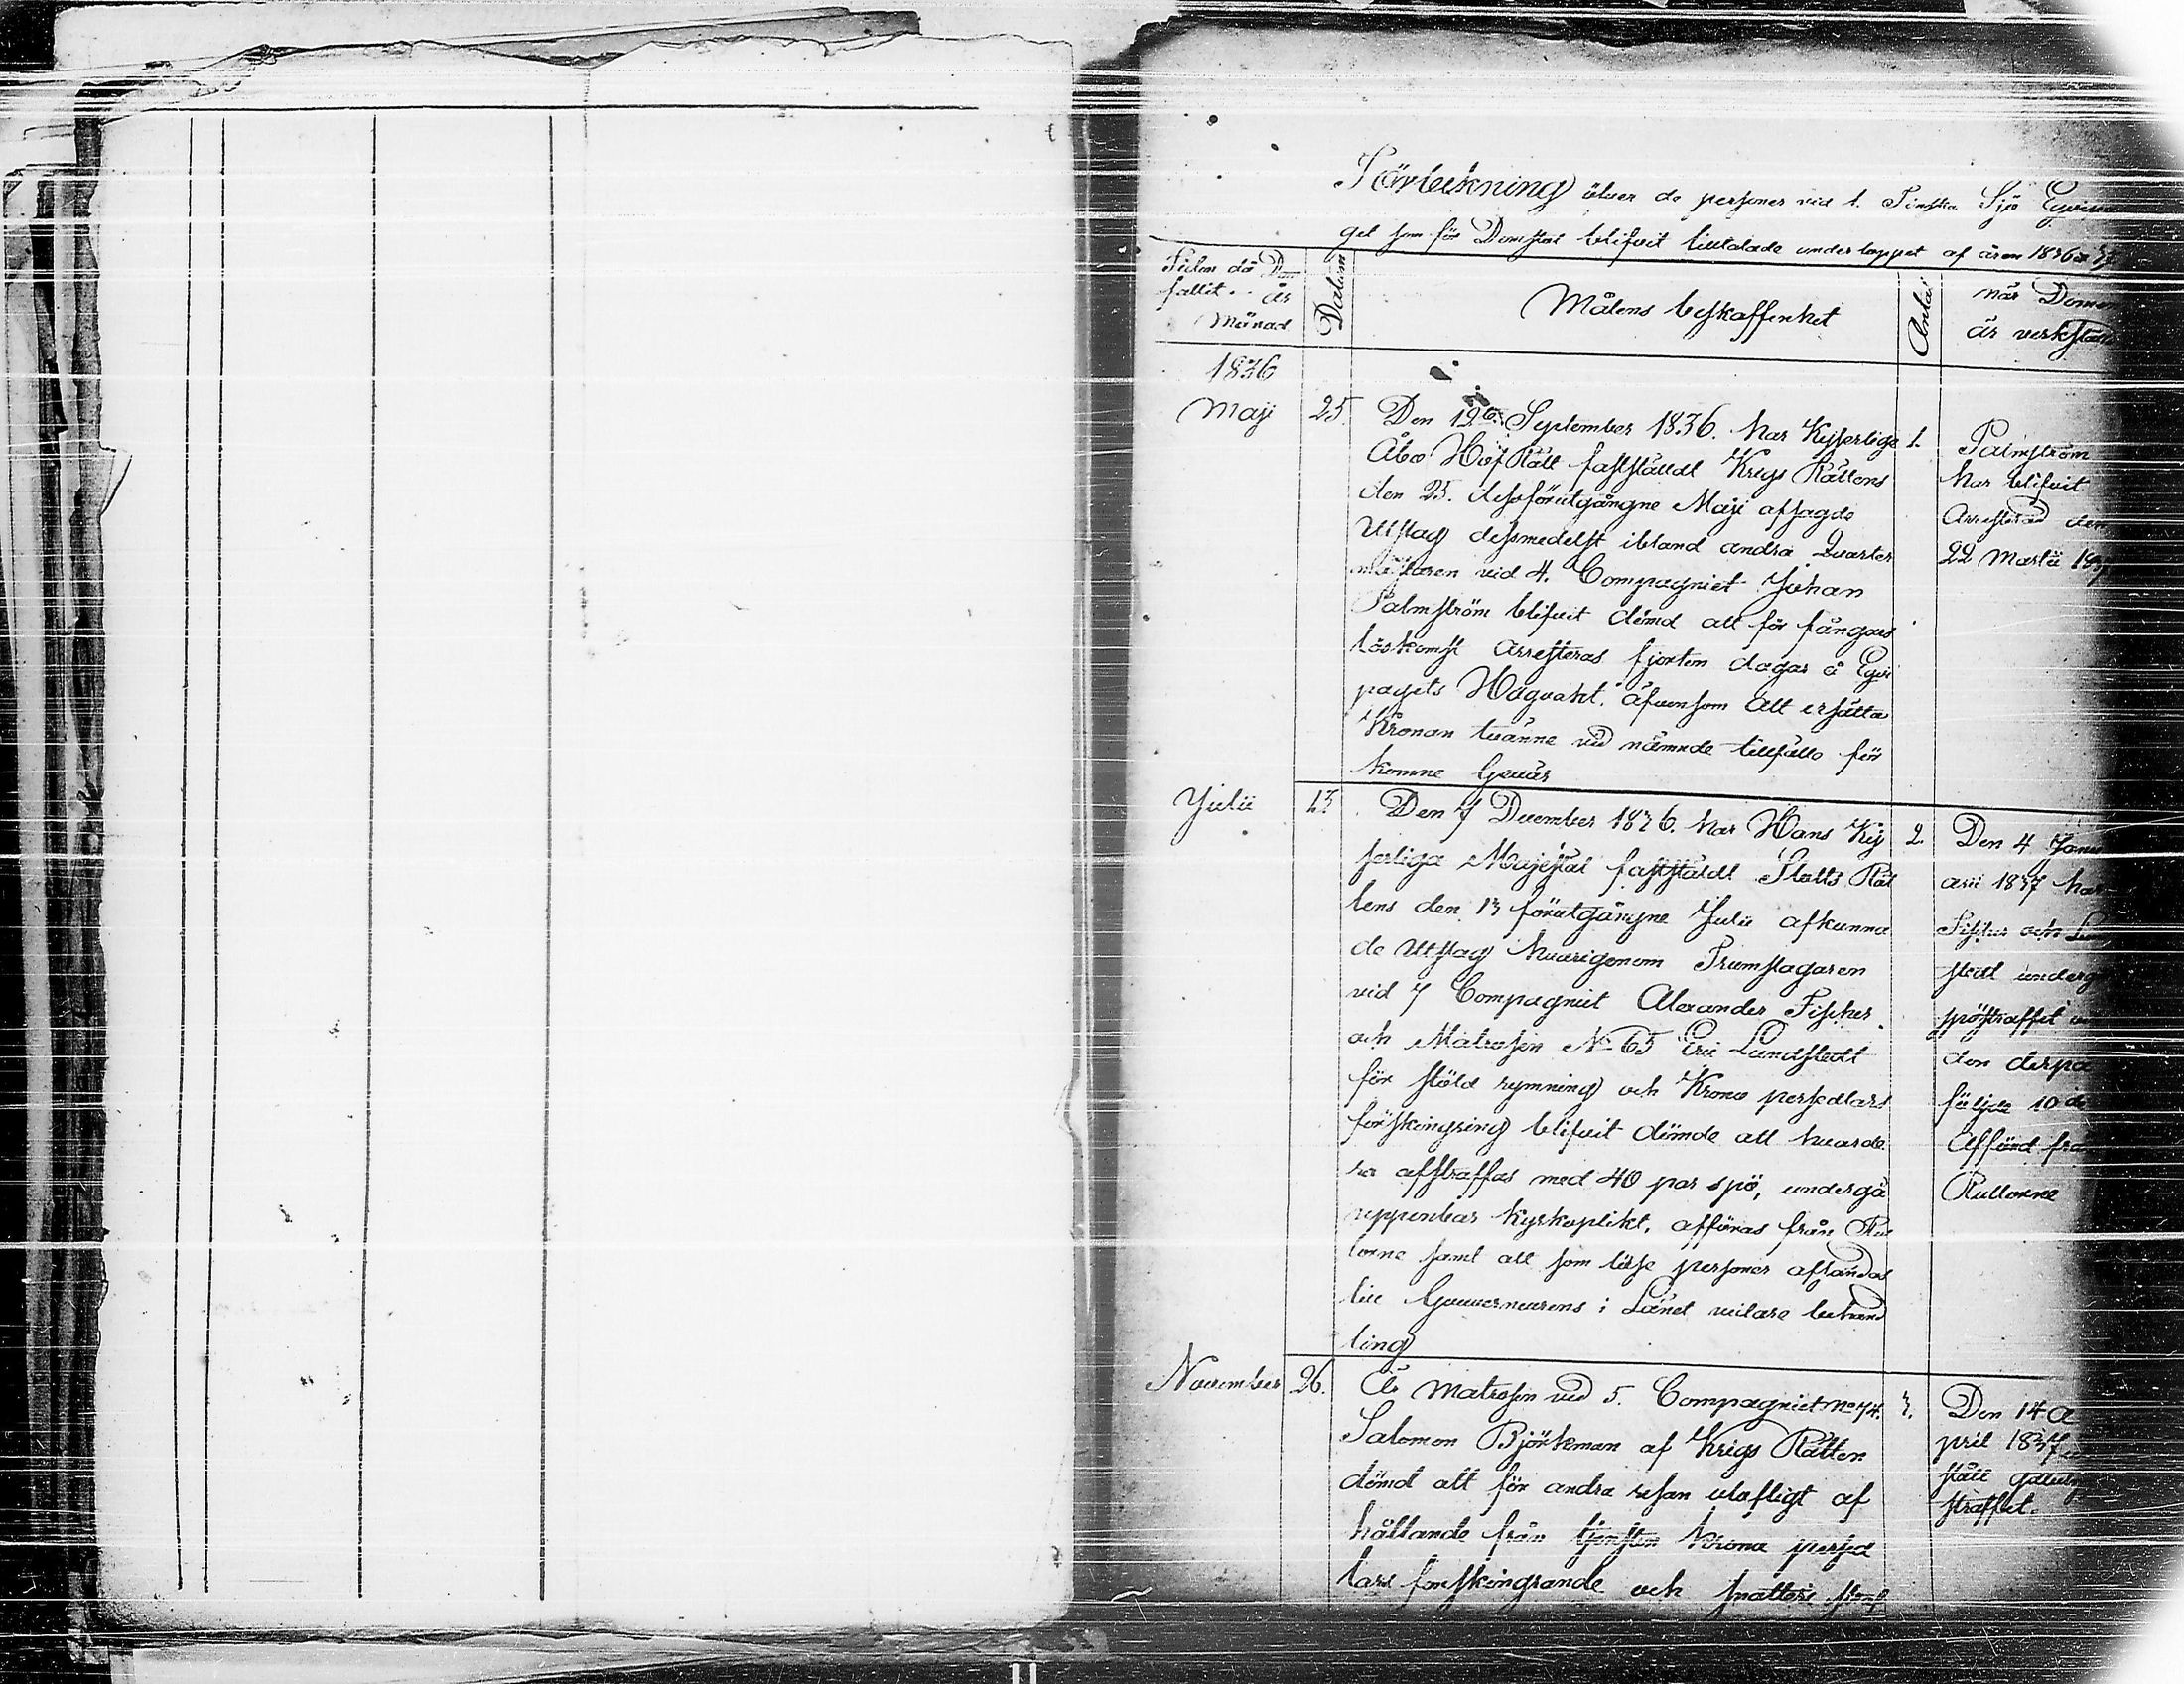 Förteckning öfver de personer vid 1. Finska Sjö Equipa
get som för Domstol blifvit tilltalade under loppet af åren 1836 a 37
Tiden då Dom
fallit.. år
Månad
Datum
Målens beskaffenhet
Antal
när Domen
är verkställd
1836
Maji 25. Den 12te September 1836. har Kejserliga 1.
Åbo HofRätt fastställdt Krigs Rättens
den 25. dessförutgångne Maji afsagde
Utslag dessmedelst ibland andra Quarter
mästaren vid 4. Compagniet Johan
Palmström blifvit dömd att för fångars
löskomst arresteras fjorton dagar å Equi
pagets Högvakt, äfvensom att ersätta
Kronan tvänne vid nämnde tillfälle för
komne Gevär
Palmström
har blifvit
Arresterad den
22 Martii 18
Julii 13. Den 7 December 1836. har Hans Kej 2.
serliga Majestät fastställdt Slotts Rät
tens den 13 förutgångne Julii afkunna
de Utslag hvarigenom Trumslagaren
vid 7 Compagniet Alexander Fischer
och Matrosen No 65 Eric Lundstedt
för stöld rymning och Krono persedlars
förskingring blifvit dömde att hvarde
ra afstraffas med 40 par spö, undergå
uppenbar kyrkoplikt, afföras från Rul
lorne samt att som löse personer afsändas
till Gouverneurens i Länet vidare behand
ling
Den 4 Janu
arii 1837 har
Fischer och Lund
stedt underg
spöstraffet
den derpå
följde 10de
Afförd från
Rullorne
November 26. Är Matrosen vid 5. Compagniet No 74. 3.
Salomon Björkman af Krigs Rätten
dömd att för andra resan olofligt af
hållande från tjensten Krono persed
lars förskingrande och snatteri straf
Den 14 A
pril 1837
ståll
straffet.